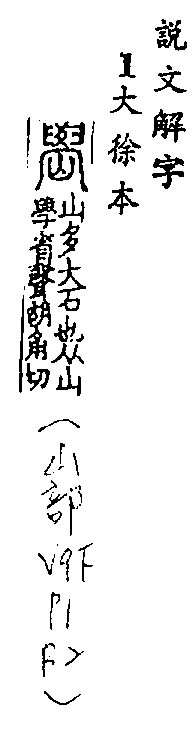 説文解字
1大徐本
山多大石也从山
學省聲胡角切
(山部V9F
P1
F>)